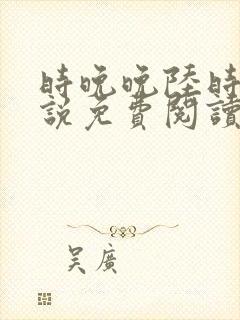 時晚晚陸時
說免費閱讀
吳廣